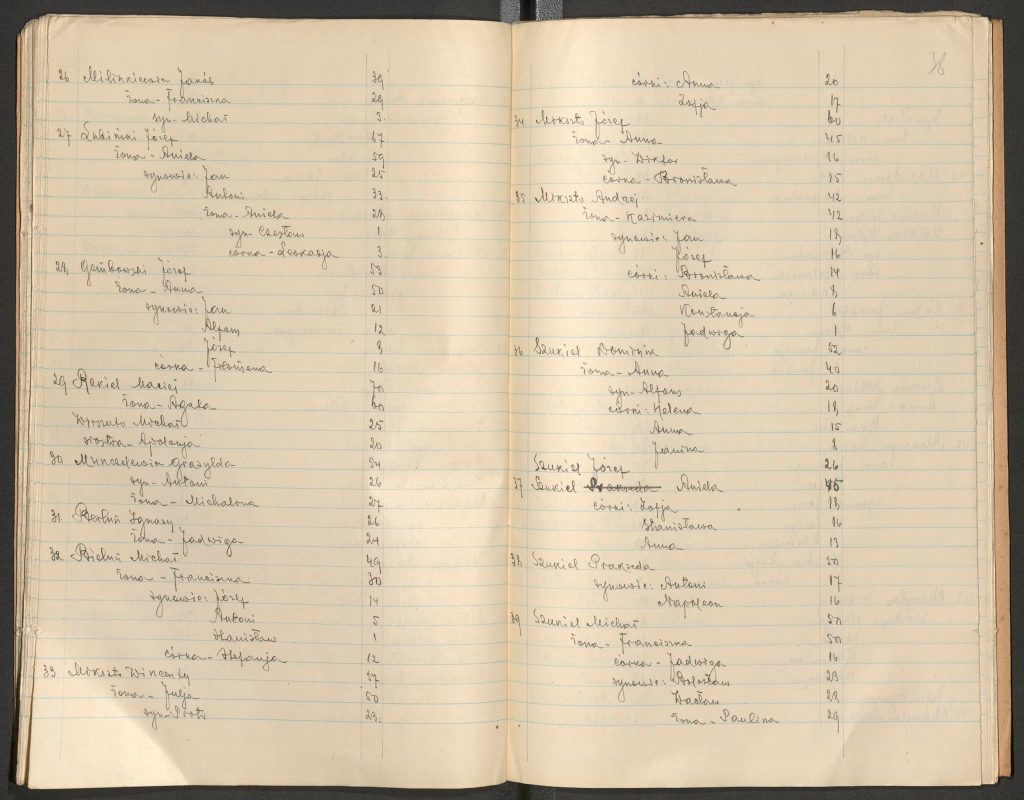 26 Milinniewicz Janób 39
żona - Franciszka 29
syn - Michał 3.
27 Łubiński Józef 67
żona - Aniela 59
synowie: Jan 25
Antoni 33.
żona - Aniela 28
syn - Czesław 1
córka - Leokadja 3.
28 Gembowski Józef 53.
żona - Anna 50
synowie: Jan 21
Alfons 12
Józef 8
córka - 16
29 Rekiel Maciej 70
żona - Agata 60
Michał 25
siostra - Apolonja 20
30 Grażylda 54
syn - Antoni 26
żona - Michalina 27
31 Bieluń Ignacy 26
żona - Jadwiga 24
32 Bieluń Michał 49
żona - Franciszka 30
synowie: Józef 14
Antoni 5
Stanisław 1
córka - Stefanja 12
33 Mikszto Wincenty 57
żona - Julja 50
syn - Piotr 23.
38
córki: Anna 20
Zofja 17
34 Mikszto Józef 60
żona - Anna 45
syn - Wiktor 16
córka - Bronisława 15
35 Mikszto Andrzej 42
żona - Kazimiera 42
synowie: Jan 18
Józef 16
córki: Bronisława 14
Aniela 8
Konstancja 6
Jadwiga 1
36 Szukiel Dominik 52
żona - Anna 40
syn - Alfons 20
córki: Helena 18
Anna 15
Janina 8
Szukiel Józef 26
37 Szukiel Prakseda Aniela 45
córki: Zofja 18
Stanisława 16
Anna 13
38 Szukiel Prakseda 50
synowie: Antoni 17
Napoleon 16
39 Szukiel Michał 50
żona - Franciszka 50
córka - Jadwiga 16
synowie: Bolesław 23
Wacław 28
żona - Paulina 29